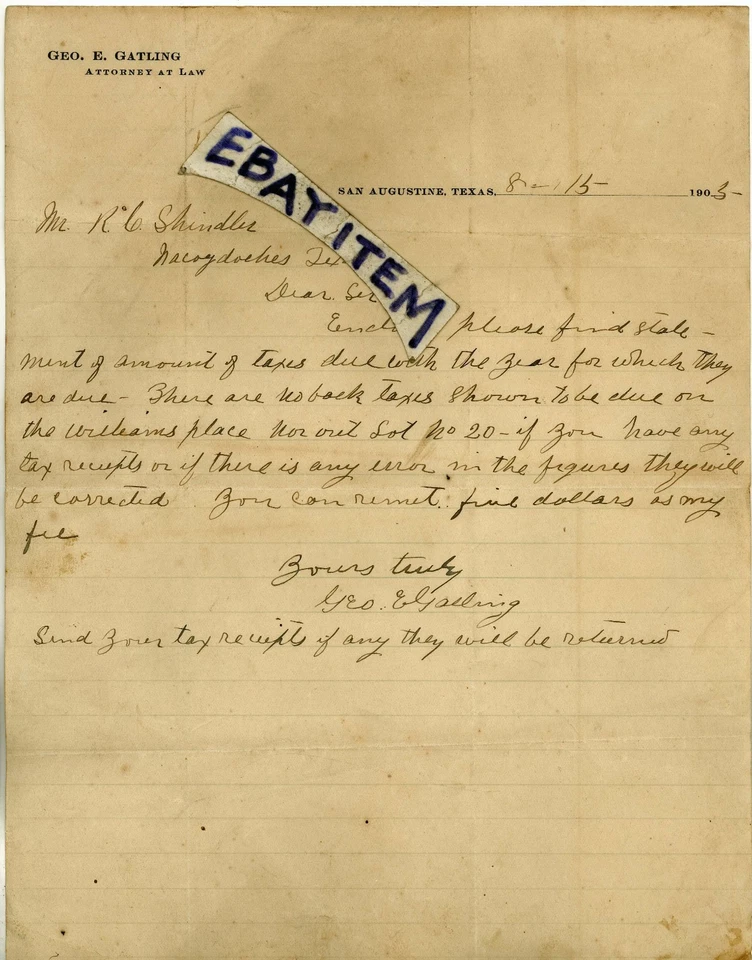 GEO. E. GATLING
ATTORNEY AT LAW
EBAY ITEM
SAN AUGUSTINE, TEXAS, 8 - 15 - 1905
Mr R C Shindler
Nacogdoches Tex
Dear Sir
Encl please find state -
ment of amount of taxes due with the year for which they
are due - There are no back taxes shown to be due on
the Williams place nor Lot No 20 - if you have any
tax receipts or if there is any error in the figures they will
be corrected. You can remit five dollars as my
fee
Yours truly
Geo. E Gatling
Send your tax receipts if any they will be returned